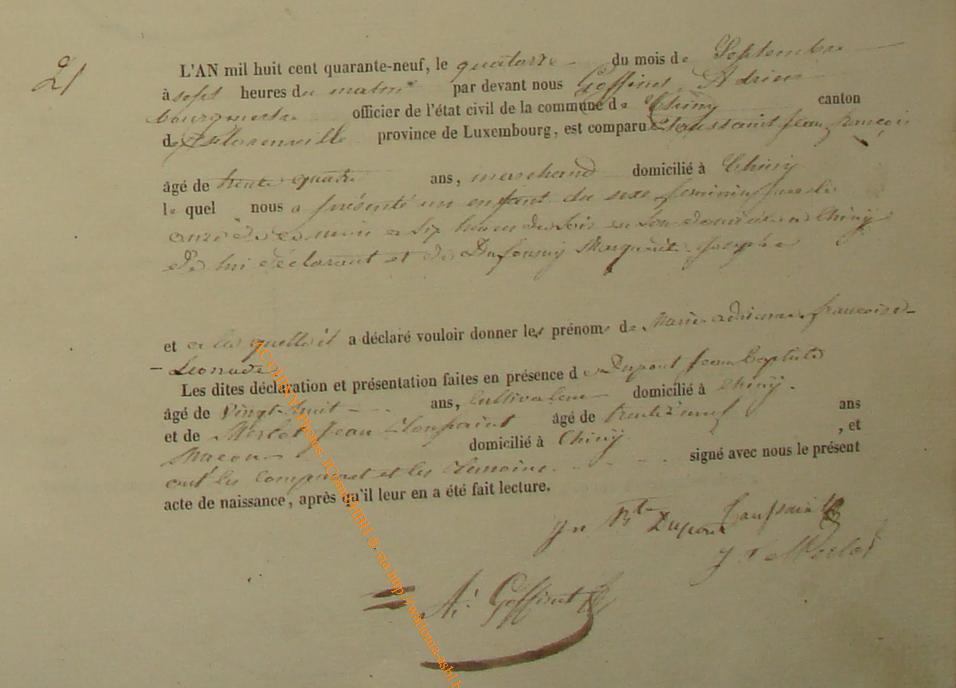 21
L'AN mil huit cent quarante-neuf, le quatorze du mois de Septembre
à sept heures du matin par devant nous Goffinet Adrien
bourgmestre officier de l'état civil de la commune de Chiny canton
de Florenville province de Luxembourg, est comparu Toussaint jean françois
âgé de trente quatre ans, marchand domicilié à Chiny
le quel nous a présenté un enfant du sexe feminin
onze de ce mois a six heures du soir en son domicile a Chiny
de lui déclarant et de Marguerite josephe
et a la quelle il a déclaré vouloir donner les prénoms de Marie adrienne françoise
- Leonade
Les dites déclaration et présentation faites en présence de Dupont Jean Baptiste
âgé de Vingt huit ans, Cultivateur domicilié à Chiny.
et de Merlot Jean Toussaint âgé de trente neuf ans
Macon domicilié à Chiny , et
ont les comparant et les temoins signé avec nous le présent
acte de naissance, après qu'il leur en a été fait lecture.
Jn Bte Dupont Toussaint
J T Merlot
Ad. Goffinet